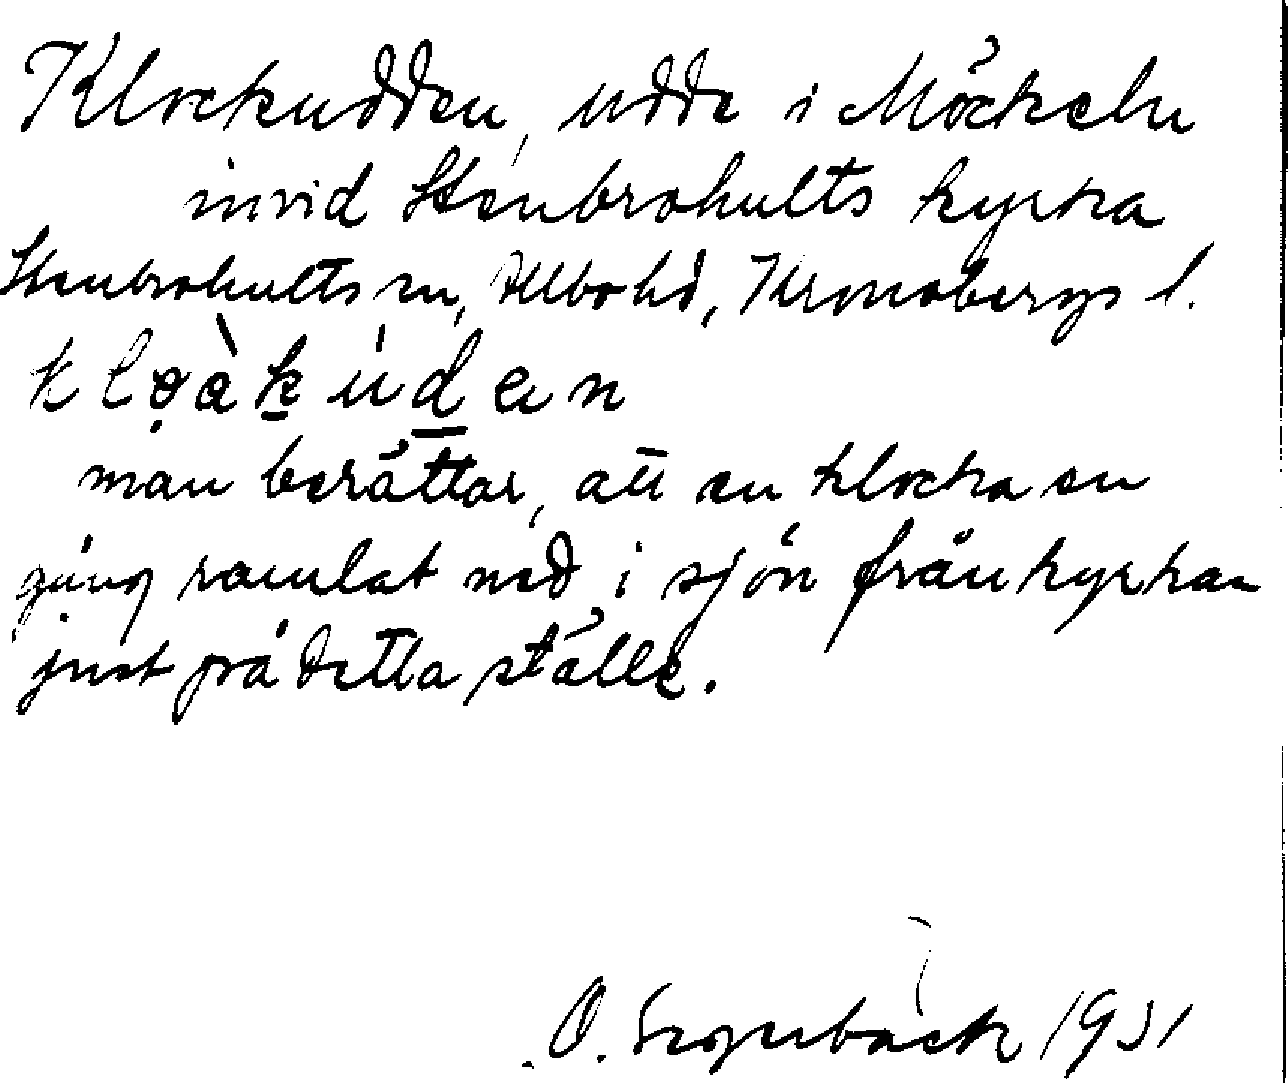 Klockudden, udde i Möckeln
invid Stenbrohults kyrka
Stenbrohults sn, Allbo hd, Kronobergs l.
man berättar, att en klocka en
gång ramlat ned i sjön från kyrkan
just på detta ställe.
O. 1931